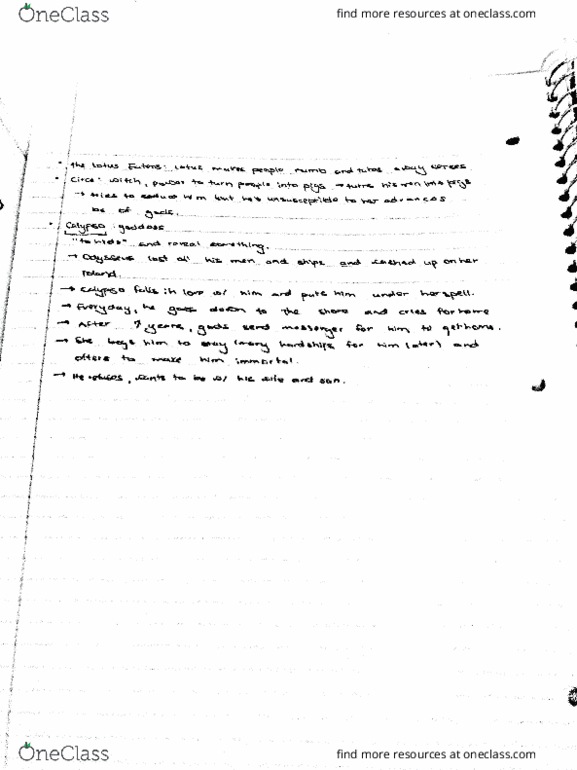 OneClass
find more resources at oneclass.com
• the Lotus Eaters: Lotus makes people numb and takes away
• Circe: witch, power to turn people into pigs → turns his men into pigs
→ tries to seduce him but he's unsusceptible to her advances
bc of gods.
• Calypso: goddess
"to hide" and reveal something.
→ Odysseus lost all his men and ships and washed up on her
Island.
→ Calypso falls in love w/ him and puts him under her spell.
→ Everyday, he goes down to the shore and cries for home
→ After 7 years, gods send messenger for him to get home.
→ She begs him to stay (many hardships for him later) and
offers to make him immortal.
→ He refuses, wants to be w/ his wife and son.
OneClass
find more resources at oneclass.com